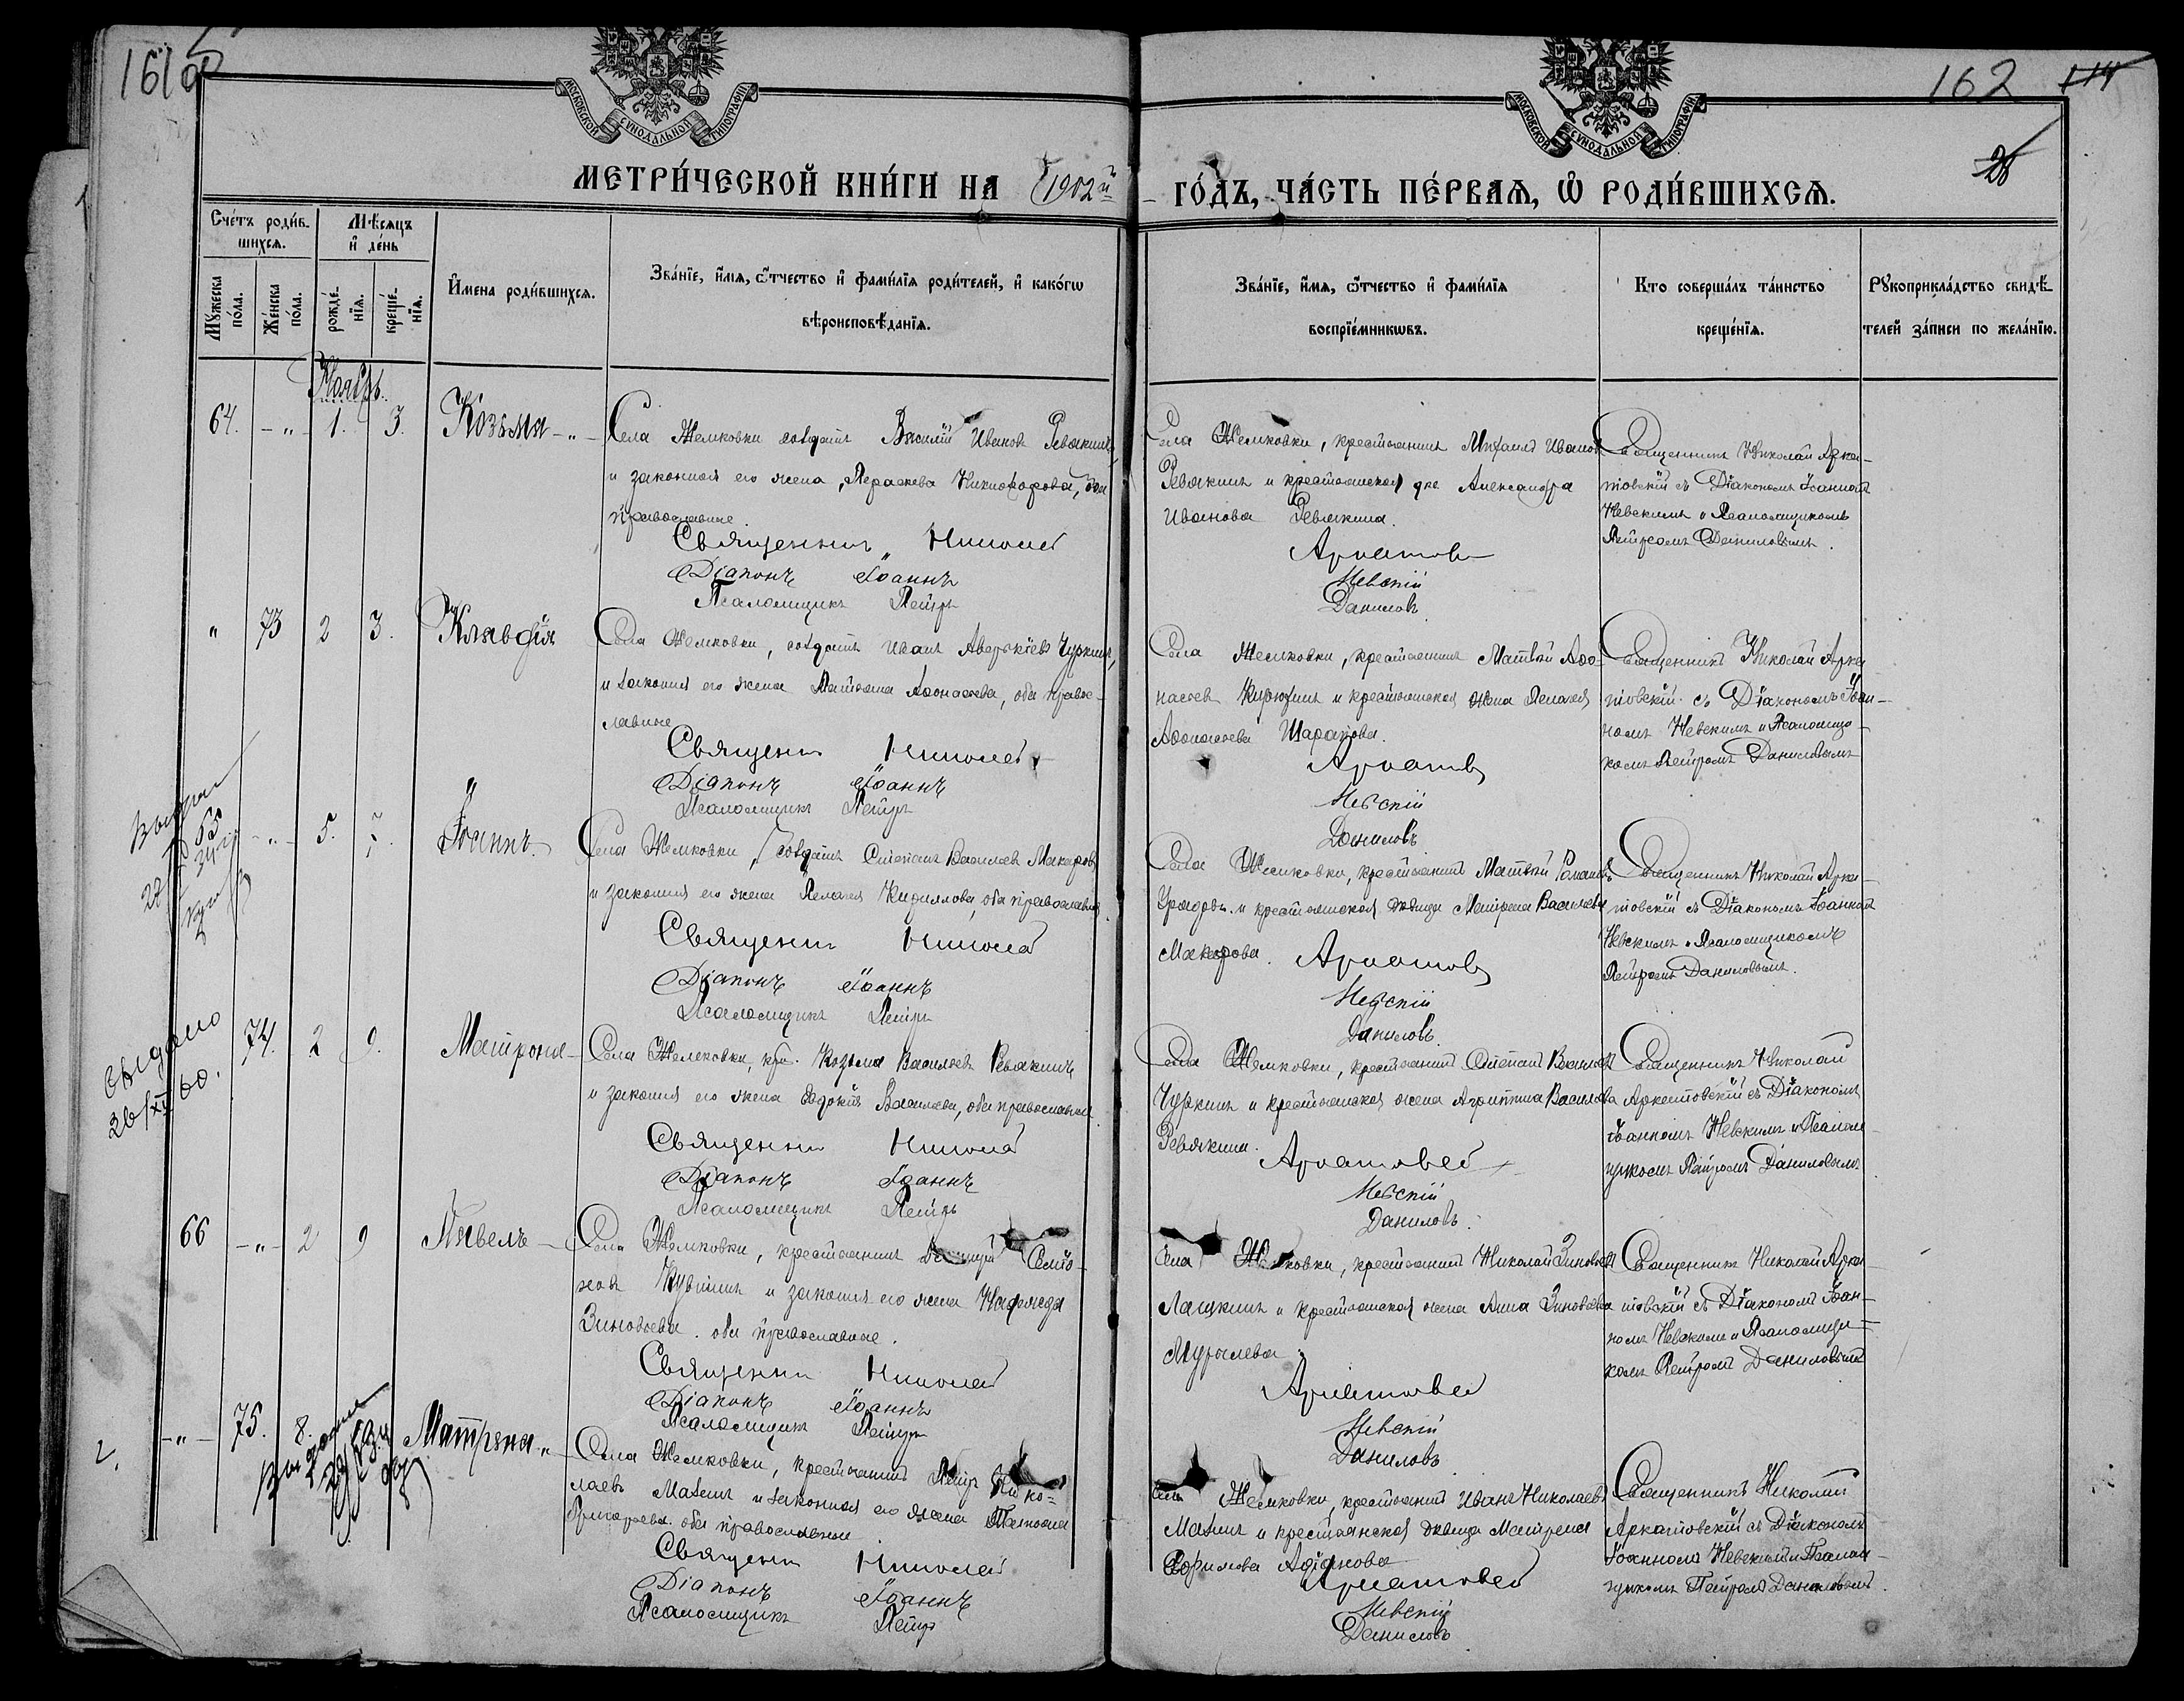 161об
162 114
28
МОСКОВСКОЙ СѴНОДАЛЬНОЙ ТИПОГРАФІИ
МОСКОВСКОЙ СѴНОДАЛЬНОЙ ТИПОГРАФІИ
МЕТРИ́ЧЕСКОЙ КНИ́ГИ НА 1902й ГО́ДЪ, ЧА́СТЬ ПЕ́РВАѦ, Ѡ҆ РОДИ́ВШИХСѦ.
Сче́тъ роди́в-
шихсѧ.
Мѣ́сѧцъ
и҆ де́нь
Мꙋ́жеска по́ла.
Же́нска по́ла.
рожде́-
нїѧ.
креще́-
нїѧ.
И҆мена роди́вшихсѧ.
Зва́нїе, и҆́мѧ, ѻ҆́тчество и҆ фами́лїѧ роди́телей, и҆ како́гѡ
вѣроисповѣ́данїѧ.
Зва́нїе, и҆́мѧ, ѻ҆́тчество и҆ фами́лїѧ
воспрїе́мникѡвъ.
Кто соверша́лъ та́инство
креще́нїѧ.
Рꙋкоприкла́дство свидѣ́-
телей за́писи по жела́нїю.
Ноябрь.
64. - " - 1. 3. Козьма - " -
Села Жемковки солдатъ Василій Ивановъ Ревякинъ,
и законная его жена, Параскева Никифорова, оба
православные.
Священникъ Николай
Діаконъ Іоаннъ
Псаломщикъ Петръ
Села Жемковки, крестьянинъ Михаилъ Ивановъ
Ревякинъ и крестьянская дѣв. Александра
Иванова Ревякина.
Аркатов
Невскій
Даниловъ
Священникъ Николай Арка-
товскій съ Діакономъ Іоанномъ
Невскимъ и Псаломщикомъ
Петромъ Даниловымъ.
" 73 2 3. Клавдія
Села Жемковки, солдатъ Иванъ Аверкіевъ Чуркинъ,
и законная его жена Афонасьева, оба право-
славные
Священникъ Николай
Діаконъ Іоаннъ
Псаломщикъ Петръ
Села Жемковки, крестьянинъ Матвѣй Афо-
насьевъ и крестьянская жена Пелагея
Афонасьева Шарапова.
Аркатов
Невскій
Даниловъ
Священникъ Николай Арка-
товскій съ Діакономъ Іоан-
номъ Невскимъ и Псаломщи-
комъ Петромъ Даниловымъ
65 - " - 5. 7. Іоаннъ.
Села Жемковки, солдатъ Степанъ Васильевъ Макаровъ
и законная его жена Пелагея Кириллова, оба православные.
Священникъ Николай
Діаконъ Іоаннъ
Псаломщикъ Петръ
Села Жемковки, крестьянинъ Матвѣй Романовъ
и крестьянская дѣвица Матрена Васильева
Макарова.
Аркатов
Невскій
Даниловъ.
Священникъ Николай Арка-
товскій съ Діакономъ Іоанномъ
Невскимъ и Псаломщикомъ
Петромъ Даниловымъ.
выдано
26/XI 60.
74. 2 9. Матрона -
Села Жемковки, кр. Козьма Васильевъ Ревякинъ
и законная его жена Евдокія Васильева, оба православные
Священникъ Николай
Діаконъ Іоаннъ
Псаломщикъ Петръ
Села Жемковки, крестьянинъ Степанъ Васильевъ
Чуркинъ и крестьянская жена Агриппина Васильева
Ревякина.
Аркатовскій
Невскій
Даниловъ.
Священникъ Николай
Аркатовскій съ Діакономъ
Іоанномъ Невскимъ и Псалом-
щикомъ Петромъ Даниловымъ
66 - " - 2 9 Павелъ -
Села Жемковки, крестьянинъ Семіо-
новъ и законная его жена Надежда
Зиновьева. оба православные.
Священникъ Николай
Діаконъ Іоаннъ
Псаломщикъ Петръ
Села Жемковки, крестьянинъ Николай Зиновьевъ
Лашкинъ и крестьянская жена Анна Зиновьева
Аркатовскій
Невскій
Даниловъ
Священникъ Николай Арка-
товскій съ Діакономъ Іоан-
номъ Невскимъ и Псаломщи-
комъ Петромъ Даниловымъ
2.
- " - 75. 8. Матрена "
Села Жемковки, крестьянинъ Петръ Нико-
лаевъ и законная его жена
Григорьева. оба православные
Священникъ Николай
Діаконъ Іоаннъ
Псаломщикъ Петръ
Села Жемковки, крестьянинъ Иванъ Николаевъ
и крестьянская дѣвица Матрена
Ефимова
Аркатовскій
Невскій
Даниловъ
Священникъ Николай
Аркатовскій съ Діакономъ
Іоанномъ Невскимъ и Псалом-
щикомъ Петромъ Даниловымъ.